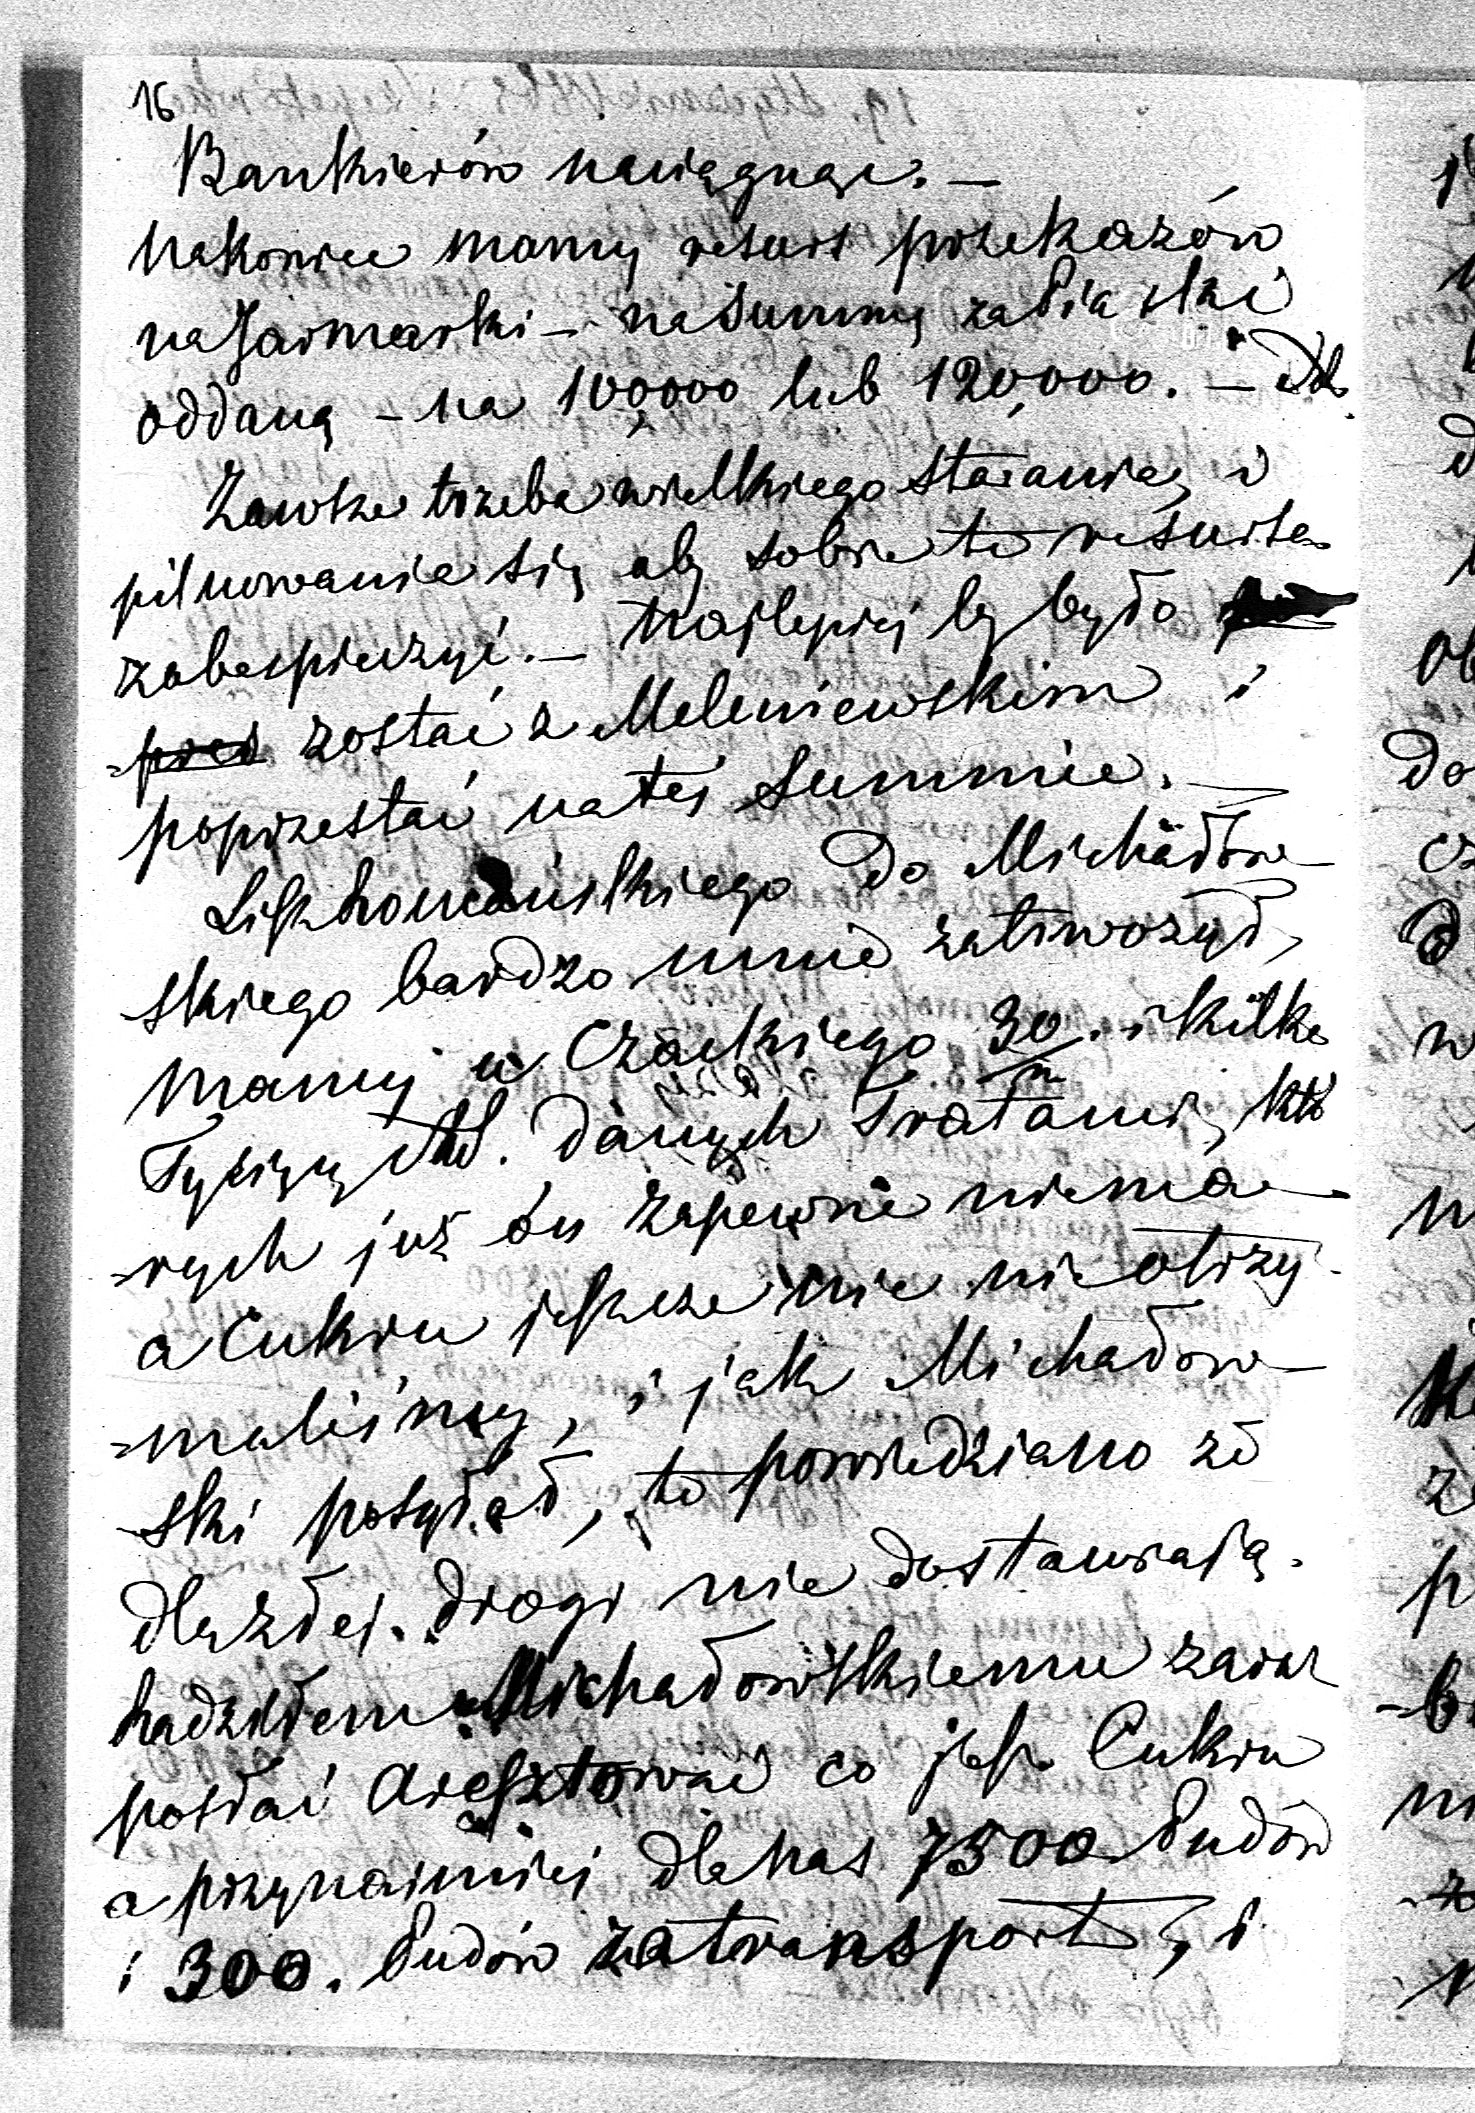 16
Bankierów naciągnąć. —
nakoniec mamy resurs przekazów
na Jarmarki — na Summę za Piaski
oddaną — na 100,000 lub 120,000. —
Zawsze trzeba wielkiego starania, i
pilnowania się aby sobie te resursa
zabespieczyć. — Najlepiej by było
zostać z Meleniewskim i
poprzestać na tej Summie. —
do Michałow
skiego bardzo mnie zatrworzył,
mamy u Czackiego 30/m. i kilka
Tysięcy danych Tratami, któ
=rych już on zapewne niema —
a Cukru jeszcze nic nie otrzy
=maliśmy, i jak Michałow —
ski posyłał, to powiedziano że
dla złej drogi nie dostawiają.
Radziłem Michałowskiemu zaraz
posłać aresztować co jest Cukru
a przynajmniej dla nas 7500 Pudów
i 300. Pudów za transport, i